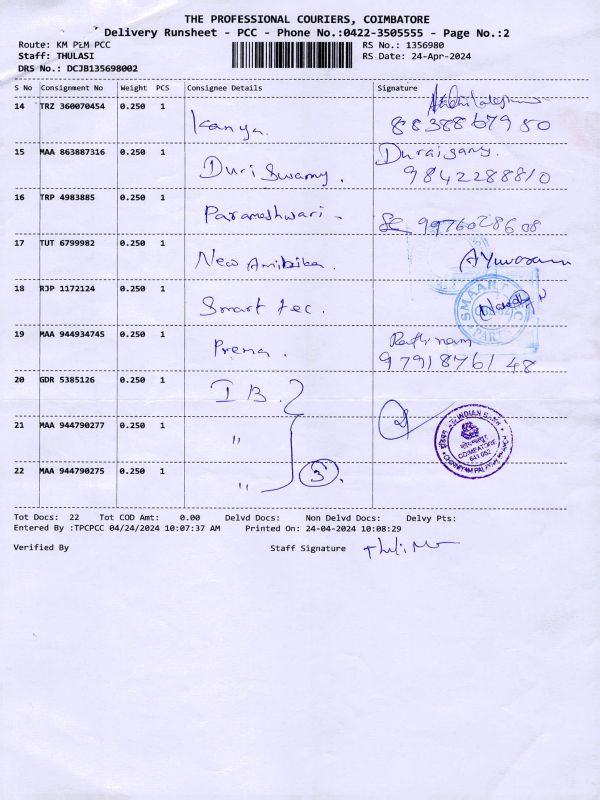 THE PROFESSIONAL COURIERS, COIMBATORE
Delivery Runsheet - PCC - Phone No.:0422-3505555 - Page No.:2
Route: KM PLM PCC
RS No.: 1356980
Staff: THULASI
RS Date: 24-Apr-2024
DRS No.: DCJB135698002
S No Consignment No Weight PCS Consignee Details Signature
14 TRZ 360070454 0.250 1 Kanya. 8838867950
15 MAA 863887316 0.250 1 Duri Swamy. Duraisamy.
9842288810
16 TRP 4983885 0.250 1 Parameshwari - 9976028608
17 TUT 6799982 0.250 1 New Ambika.
18 RJP 1172124 0.250 1 Smart tec.
SMAART
19 MAA 944934745 0.250 1 Prema. Rathinam
9791876148
20 GDR 5385126 0.250 1 I B.
21 MAA 944790277 0.250 1 "
INDIAN BANK
COIMBATORE
641 062
22 MAA 944790275 0.250 1 " 3.
Tot Docs: 22 Tot COD Amt: 0.00 Delvd Docs: Non Delvd Docs: Delvy Pts:
Entered By :TPCPCC 04/24/2024 10:07:37 AM Printed On: 24-04-2024 10:08:29
Verified By Staff Signature